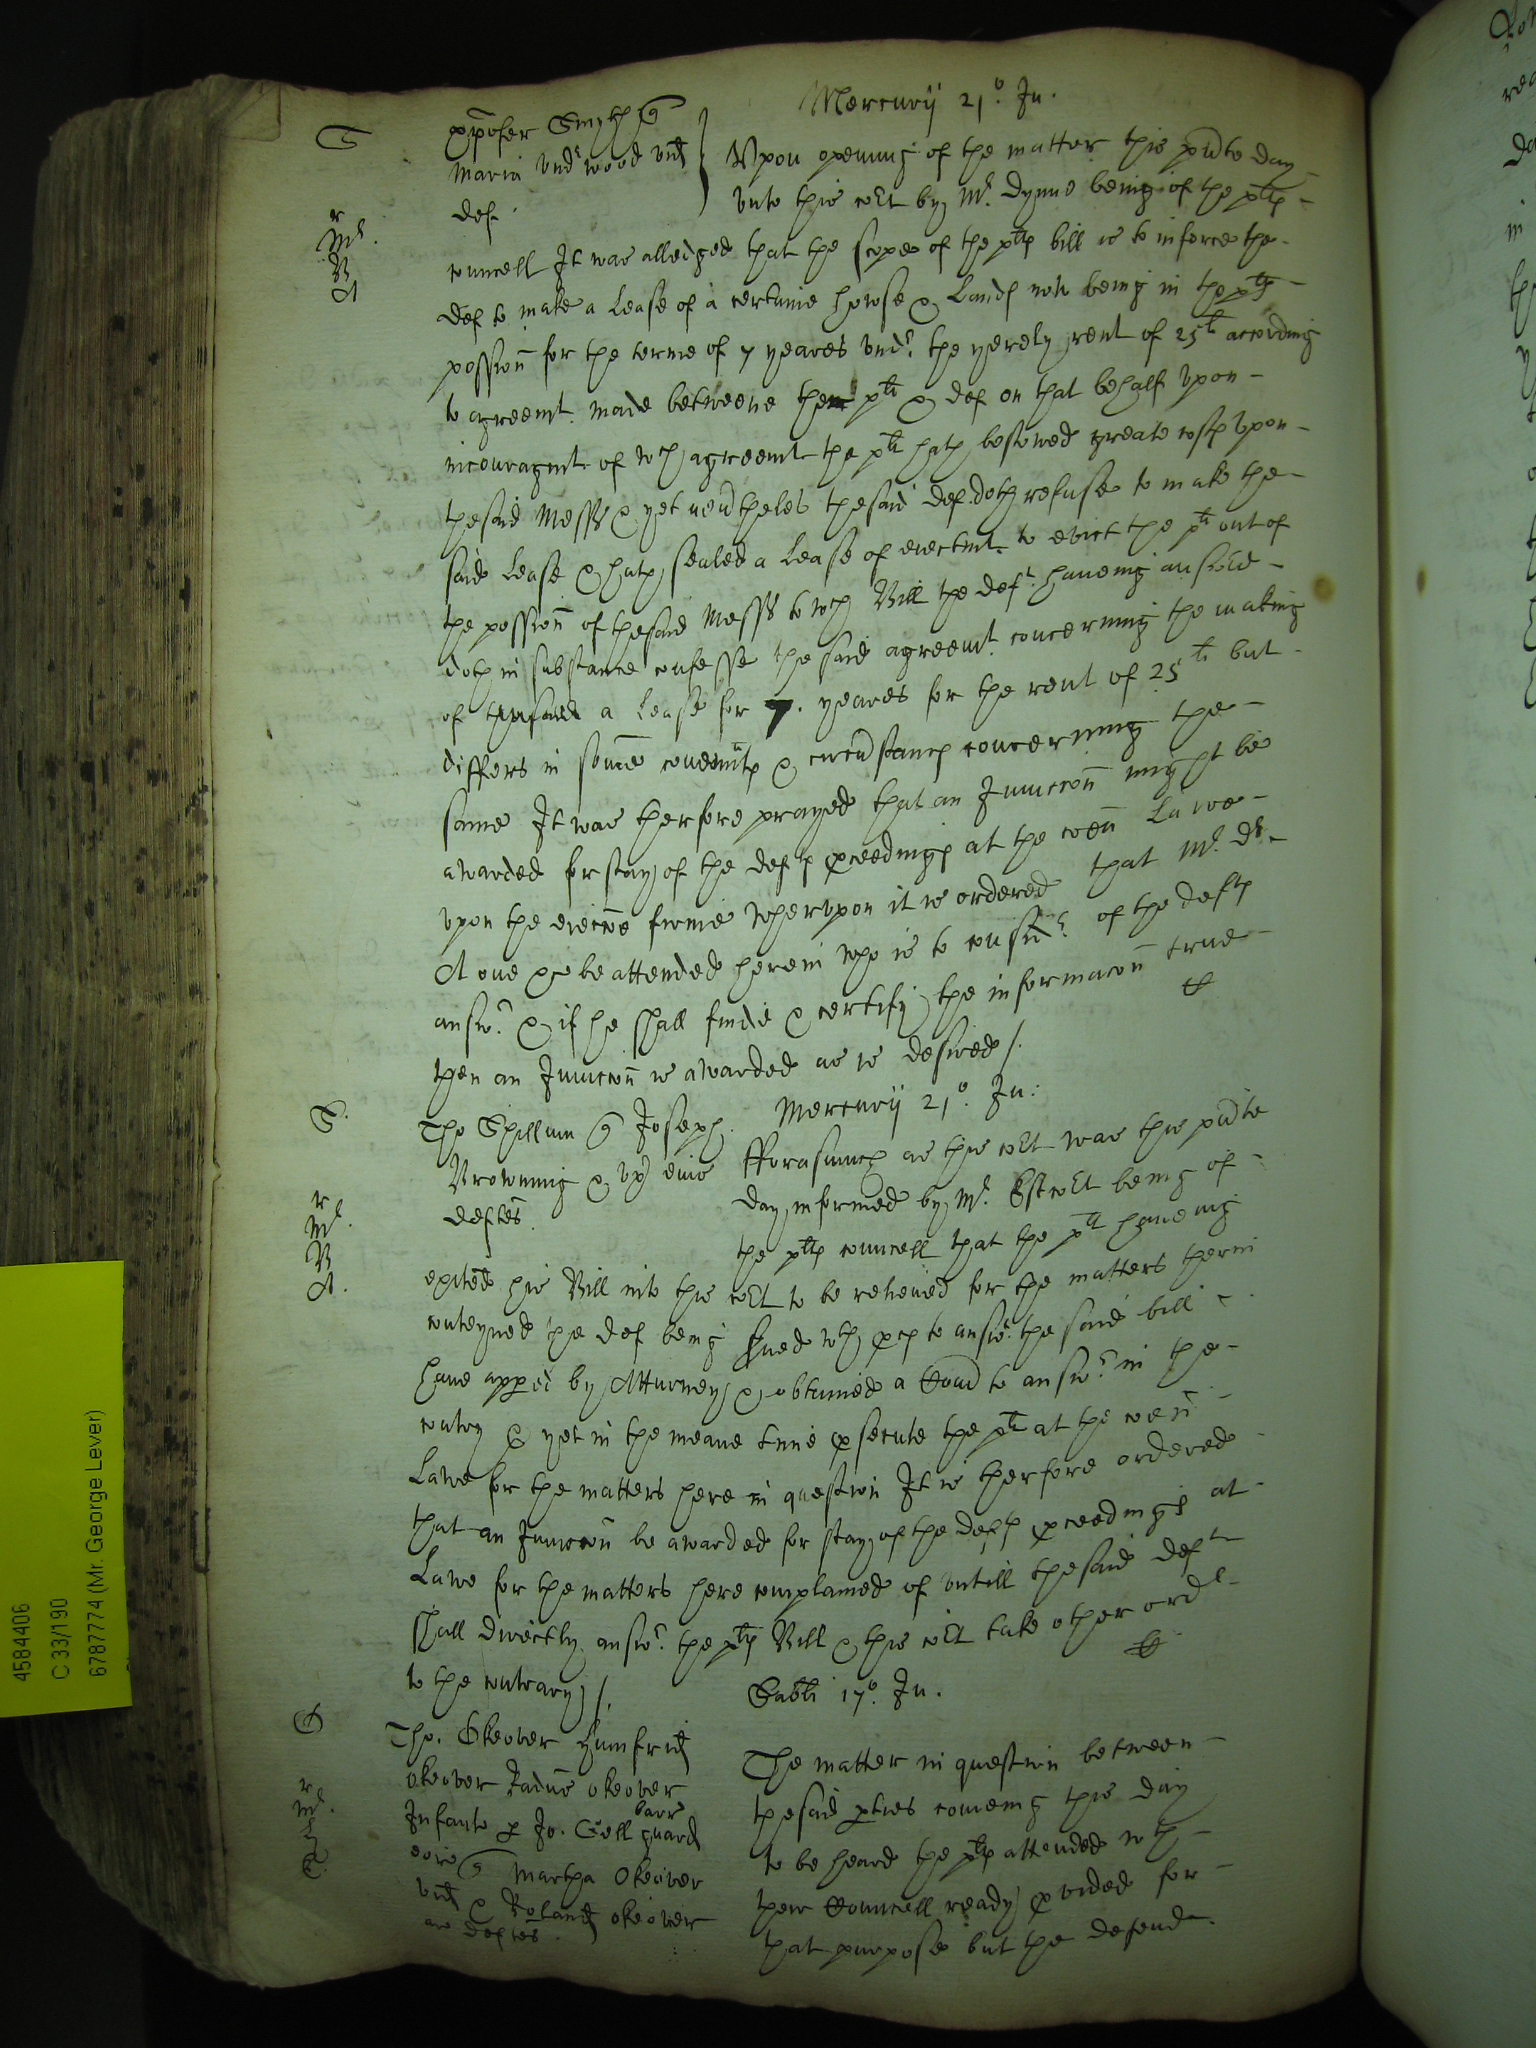 Mercurij 21º. Ju.
S xp̄ofer Smyth qr
Maria vndrwood vid
def.
Vpon opening of the matter this pñte day
vnto this co͠rt by Mr. Dynne being of the pltes
councell It was alledged that the scope of the pltes bill is to inforce the
def to make a lease of a certaine howse & Landes now being in the pltes
possion̄ for the terme of 7 yeares vndr. the yerely rent of 25li according
to agreemt. made betweene the plt & def on that behalf vpon
incouragmt of wch agreemt the plt hath bestowed greate costes vpon
the said Mess & yet neu̔theles the said def doth refuse to make the
said lease & hath sealed a lease of eiectmt. to evict the plt out of
the possion̄ of the said Mess to wch Bill the deft. haueing answed
doth in substance confesse the said agreemt. concerning the making
of a lease for 7. yeares for the rent of 25li but
differs in some couen̄tes & circu̔stances concerning the
same It was therfore prayed that an Iniuncc̄on̄ might be
awarded for stay of the deftes p̱ceedinges at the com̄on̄ Lawe
vpon the eiecc̄oe firmie Wherupon it is ordered that Mr. Dr.
be attended herein who is to consid̔r. of the deftes
answr. & if he shall finde & certify the informac̄on̄ true
then an Iniuncc̄on̄ is awarded as is desired /.
S. Tho Spillum qr Joseph
Browning & vx̔ eius
deftes.
Mercurij 21º. Ju:
Fforasmuch as this co͠rt was this pñte
day informed by Mr. Estco͠rt being of
the pltes councell that the plt haueing
exited his Bill into this co͠rt to be releiued for the matters therin
conteyned the def being s̱ued wth p̱ces to answr. the said bill
haue app̱ed by Atturney & obtained a Com̄ to answr. in the
contry & yet in the meane time p̱secute the plt at the com̄on̄
Lawe for the matters here in question It is therfore ordered
that an Iniuncc̄on̄ be awarded for stay of the deftes p̱ceedinges at
Lawe for the matters here complained of vntill the said deft
shall directly answr. the pltes Bill & this co͠rt take other ordr
to the contrary /.
Sabti 17º. Ju.
Tho. Okeover Humfrid
okeover Radūs okeover
Infants p̱ Jo. Gell barr
guard
eore qr Martha Okeover
vid & Roland okeover
ar deftes.
The matter in question between
the said p̱ties comeing this day
to be heard the pltes attended wth
their Councell ready p̱vided for
that purpose but the defend.
4584406
C 33/190
6787774 (Mr. George Lever)